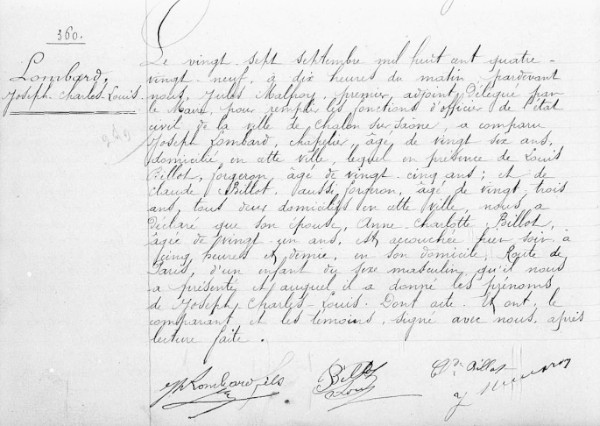 360.
Lombard,
Joseph-Charles-Louis
Le vingt-sept septembre mil huit cent quatre-
vingt-neuf, à dix heures du matin, pardevant
nous, Jules Malpoy, premier adjoint délégué par
le Maire, pour remplir les fonctions d'officier de l'état
civil de la ville de Chalon sur Saône, a comparu
Joseph Lombard, chapelier, âgé de vingt six ans,
domicilié en cette ville, lequel en présence de Louis
Billot, forgeron, âgé de vingt-cinq ans; et de
Claude Billot, aussi forgeron, âgé de vingt-trois
ans, tous deux domiciliés en cette ville, nous a
déclaré que son épouse, Anne-Charlotte Billot,
âgée de vingt-un ans, est accouchée hier soir à
cinq heures et demie, en son domicile, Route de
Paris, d'un enfant du sexe masculin, qu'il nous
a présenté et auquel il a donné les prénoms
de Joseph-Charles-Louis. Dont acte. Et ont, le
comparant et les témoins, signé avec nous, après
lecture faite.
Lombard fils
Billot
Louis
Cl. Billot